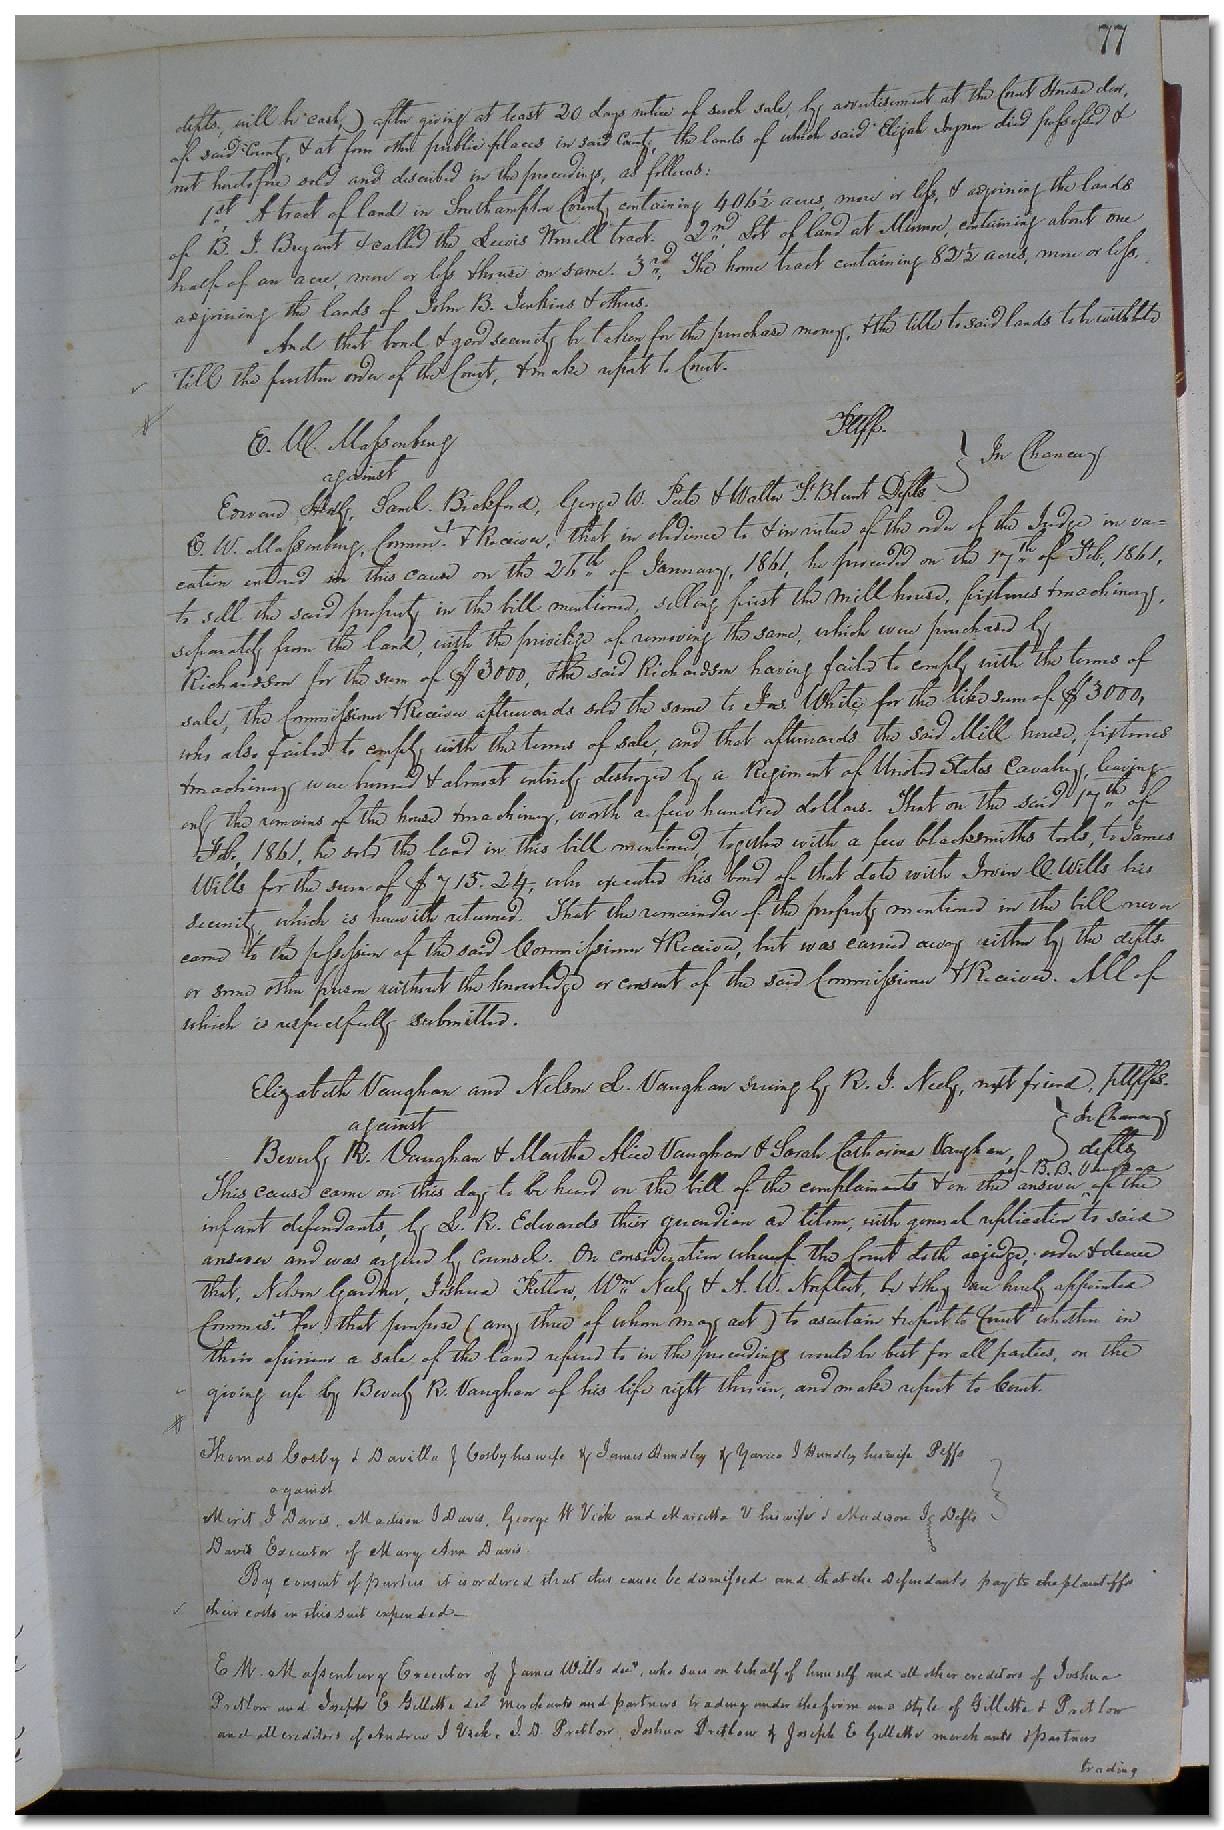 77
defts, will be cash,) after giving at least 20 days notice of such sale, by advertisement at the Court House door,
of said County, & at four other public places in said County, the lands of which said Elijah Joyner died possessed &
not heretofore sold and described in the proceedings, as follows:
1st. A tract of land in Southampton County containing 406½ acres, more or less, & adjoining the lands
of B. J. Bryant & called the Lewis Worrell tract. 2nd. Lot of land at Munroe, containing about one
half of an acre, more or less & house on same. 3rd. The home tract containing 82½ acres, more or less,
adjoining the lands of John B. Jenkins & others.
And that bond & good security be taken for the purchase money, & the title to said lands to be withheld
till the further order of the Court, & make report to Court.
E. W. Massenburg Plff.
against } In Chancery
Edward Saml. Bickford, George W. Peete & Walter F. Blunt Defts
E. W. Massenburg, Commr. & Receiver, that in obedience to & in virtue of the order of the Judge in va=
cation entered in this cause on the 26th of January, 1861, he proceeded on the 17th of Feb, 1861,
to sell the said property in the bill mentioned, selling first the mill house, fixtures & machinery,
separately from the land, with the privilege of removing the same, which were purchased by
Richardson for the sum of $3000, the said Richardson having failed to comply with the terms of
sale, the Commissioner & Receiver afterwards sold the same to Jas White, for the like sum of $3000,
who also failed to comply with the terms of sale, and that afterwards the said Mill house, fixtures
& machinery were burned & almost entirely destroyed by a Regiment of United States Cavalry, leaving
only the remains of the house & machinery, worth a few hundred dollars. That on the said 17th of
Feb, 1861, he sold the land in this bill mentioned, together with a few blacksmiths tools, to James
Wills for the sum of $715.24, who executed his bond of that date with Irvin C. Wills his
security, which is herewith returned. That the remainder of the property mentioned in the bill never
came to the possession of the said Commissioner & Receiver, but was carried away either by the defts.
or some other person without the knowledge or consent of the said Commissioner & Receiver. All of
which is respectfully submitted.
Elizabeth Vaughan and Nelson L. Vaughan suing by R. J. Neely, next friend, plffs.
against } In Chancery
Beverly R. Vaughan & Martha Alice Vaughan & Sarah Catharine Vaughan, defts
of B. R. Vaughan
This cause came on this day to be heard on the bill of the complainants & on the answer of the
infant defendants, by L. R. Edwards their guardian ad litem, with general replication to said
answer and was argued by counsel. On consideration whereof the Court doth adjudge, order & decree
that, Nelson Gardner, Joshua Pretlow, Wm Neely & A. W. Norfleet, be & they are hereby appointed
Commis. for that purpose (any three of whom may act) to ascertain & report to Court whether in
their opinion a sale of the land referred to in the proceedings would be best for all parties, on the
giving up by Beverly R. Vaughan of his life right therein, and make report to Court.
Thomas Cosby & Davilla J Cosby his wife & James Hundley & J Hundley his wife Plffs
against
Merit J Davis, Madison J Davis, George H Vick and Marietta V his wife & Madison J Defts
Davis Executor of Mary Ann Davis
By consent of parties it is ordered that this cause be dismissed and that the Defendants pay to the plaintiffs
their costs in this suit expended
E W. Massenburg Executor of James Wills decd, who sues on behalf of himself and all other creditors of Joshua
Pretlow and Joseph E Gillette decd merchants and partners trading under the firm and style of Gillette & Pretlow
and all creditors of Andrew J Vick, J. D. Pretlow, Joshua Pretlow & Joseph E Gillette merchants & partners
trading